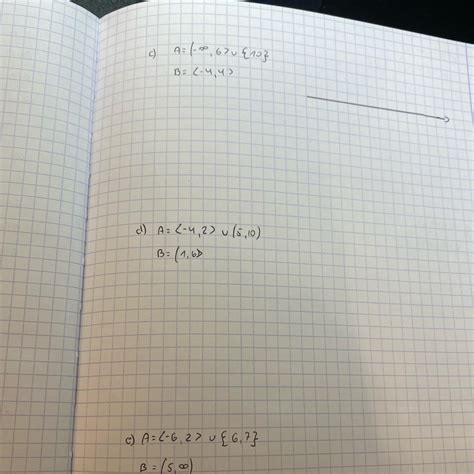 c) A = (-∞, 6> ∪ {10}
B = <-4, 4>
d) A = <-4, 2> ∪ (5, 10)
B = (1, 6>
e) A = <-6, 2> ∪ {6, 7}
B = (5, ∞)